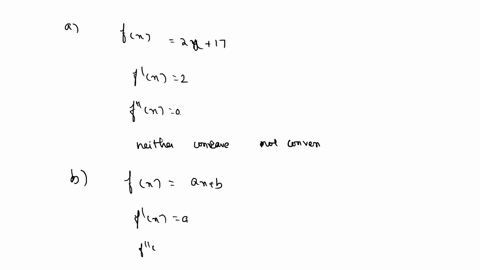 a) f(x) = 2x+17
f'(x) = 2
f''(x) = 0
neither concave not convex
b) f(x) = ax+b
f'(x) = a
f''(